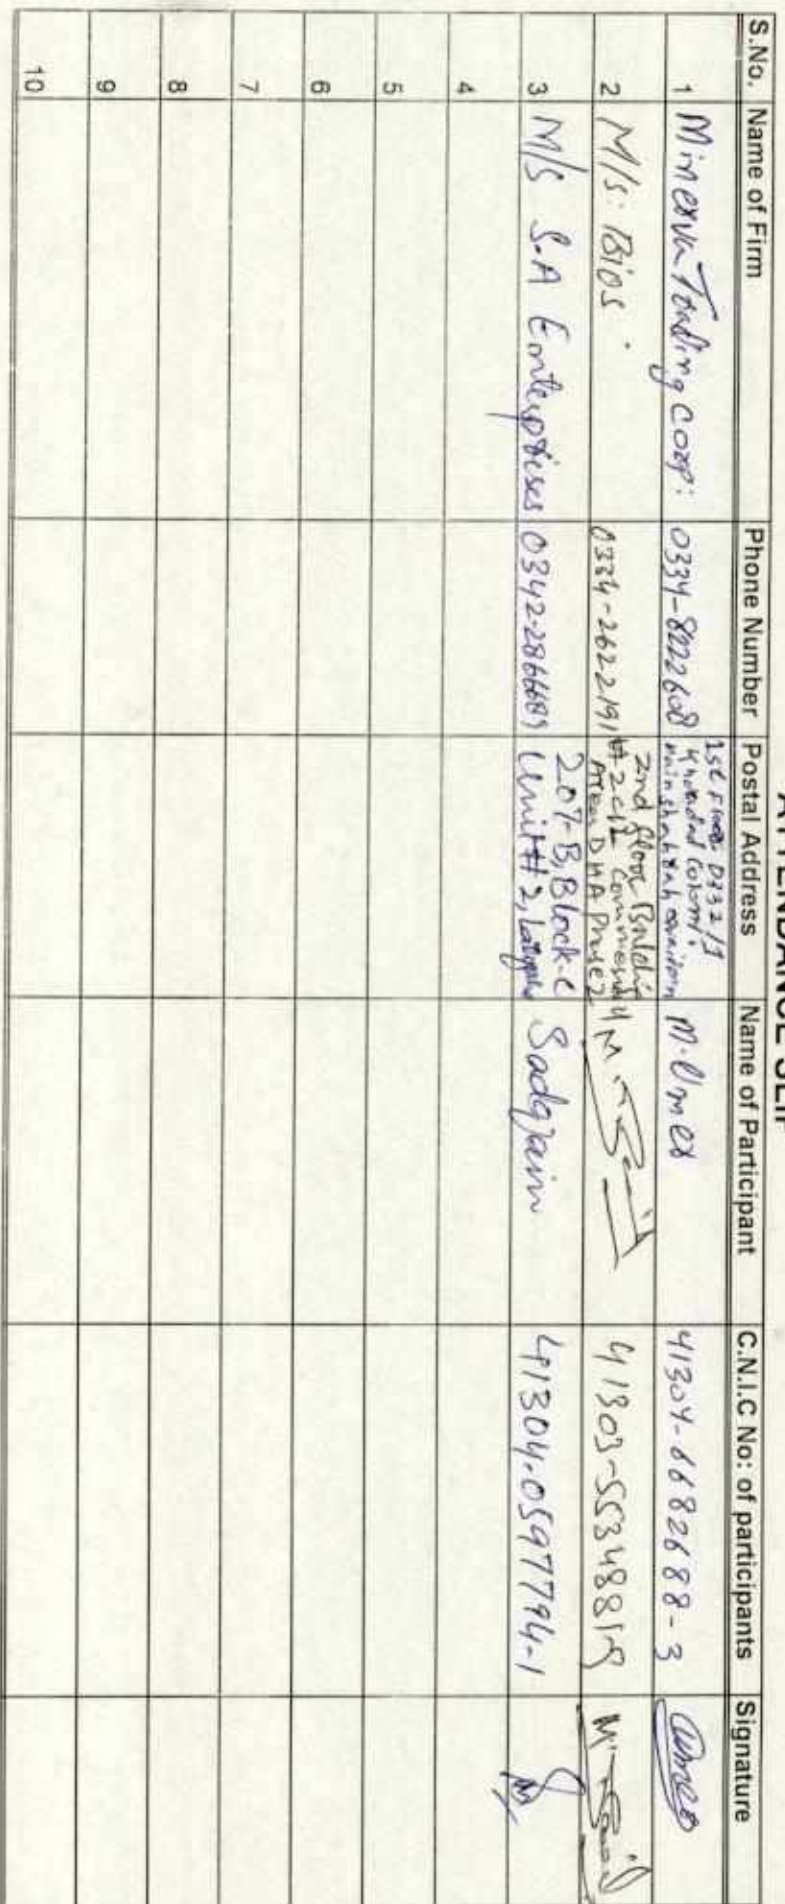 ATTENDANCE SLIP
S.No. Name of Firm Phone Number Postal Address Name of Participant C.N.I.C No: of participants Signature
1 Minerva Trading Corp: 0334-8222608 1st Floor D232/1 M. Umer 41304-6682688-3
2 M/s: Bios 0334-2622191 2nd floor Building Commercial Area DHA Phase 2 M. 41303-5534881-9
3 M/S S.A Enterprises 0342-2866689 207-B, Block-C Unit # 2, Sadqain 41304-0597794-1
4
5
6
7
8
9
10